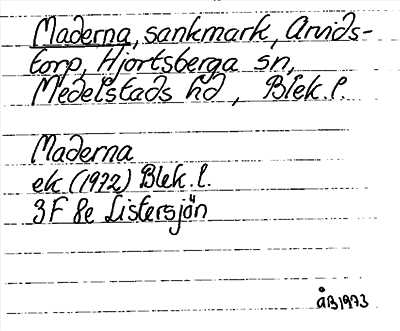 Maderna, sankmark, Arvids-
torp, Hjortsberga sn,
Medelstads hd, Blek. l.
Maderna
ek (1972) Blek. l.
3F 8e Listersjön
ÅB 1973